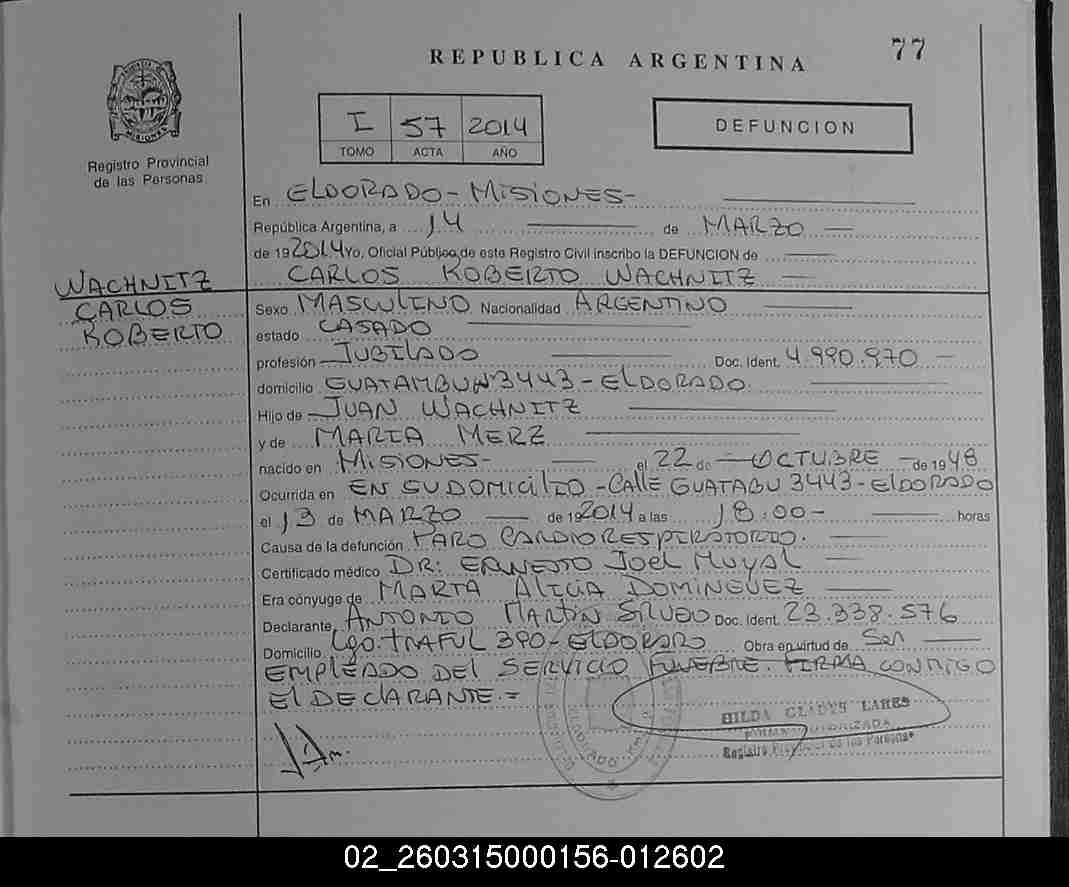 REPUBLICA ARGENTINA
77
I 57 2014
TOMO ACTA AÑO
DEFUNCION
Registro Provincial
de las Personas
En ELDORADO - MISIONES -
República Argentina, a 14 de MARZO
de 19 2014 Yo, Oficial Público de este Registro Civil inscribo la DEFUNCION de
CARLOS ROBERTO WACHNITZ
WACHNITZ
CARLOS
ROBERTO
Sexo MASCULINO Nacionalidad ARGENTINO
estado CASADO
profesión JUBILADO Doc. Ident. 4.990.970
domicilio GUATAMBU Nº 3443 - ELDORADO
Hijo de JUAN WACHNITZ
y de MARIA MERZ
nacido en MISIONES - el 22 de OCTUBRE de 19 48
Ocurrida en EN SU DOMICILIO - CALLE GUATABU 3443 - ELDORADO
el 13 de MARZO de 19 2014 a las 18:00 - horas
Causa de la defunción PARO CARDIO RESPIRATORIO.
Certificado médico DR: ERNESTO JOEL MUYAL
Era cónyuge de MARTA ALICIA DOMINGUEZ
Declarante ANTONIO MARTIN Doc. Ident. 23.338.576
Domicilio Lgo. TRAFUL 390 - ELDORADO Obra en virtud de Ser
EMPLEADO DEL SERVICIO FUNEBRE. FIRMA CONMIGO
EL DECLARANTE. =
HILDA GLADYS LARES
FIRMA AUTORIZADA
Registro Provincial de las Personas
02_260315000156-012602